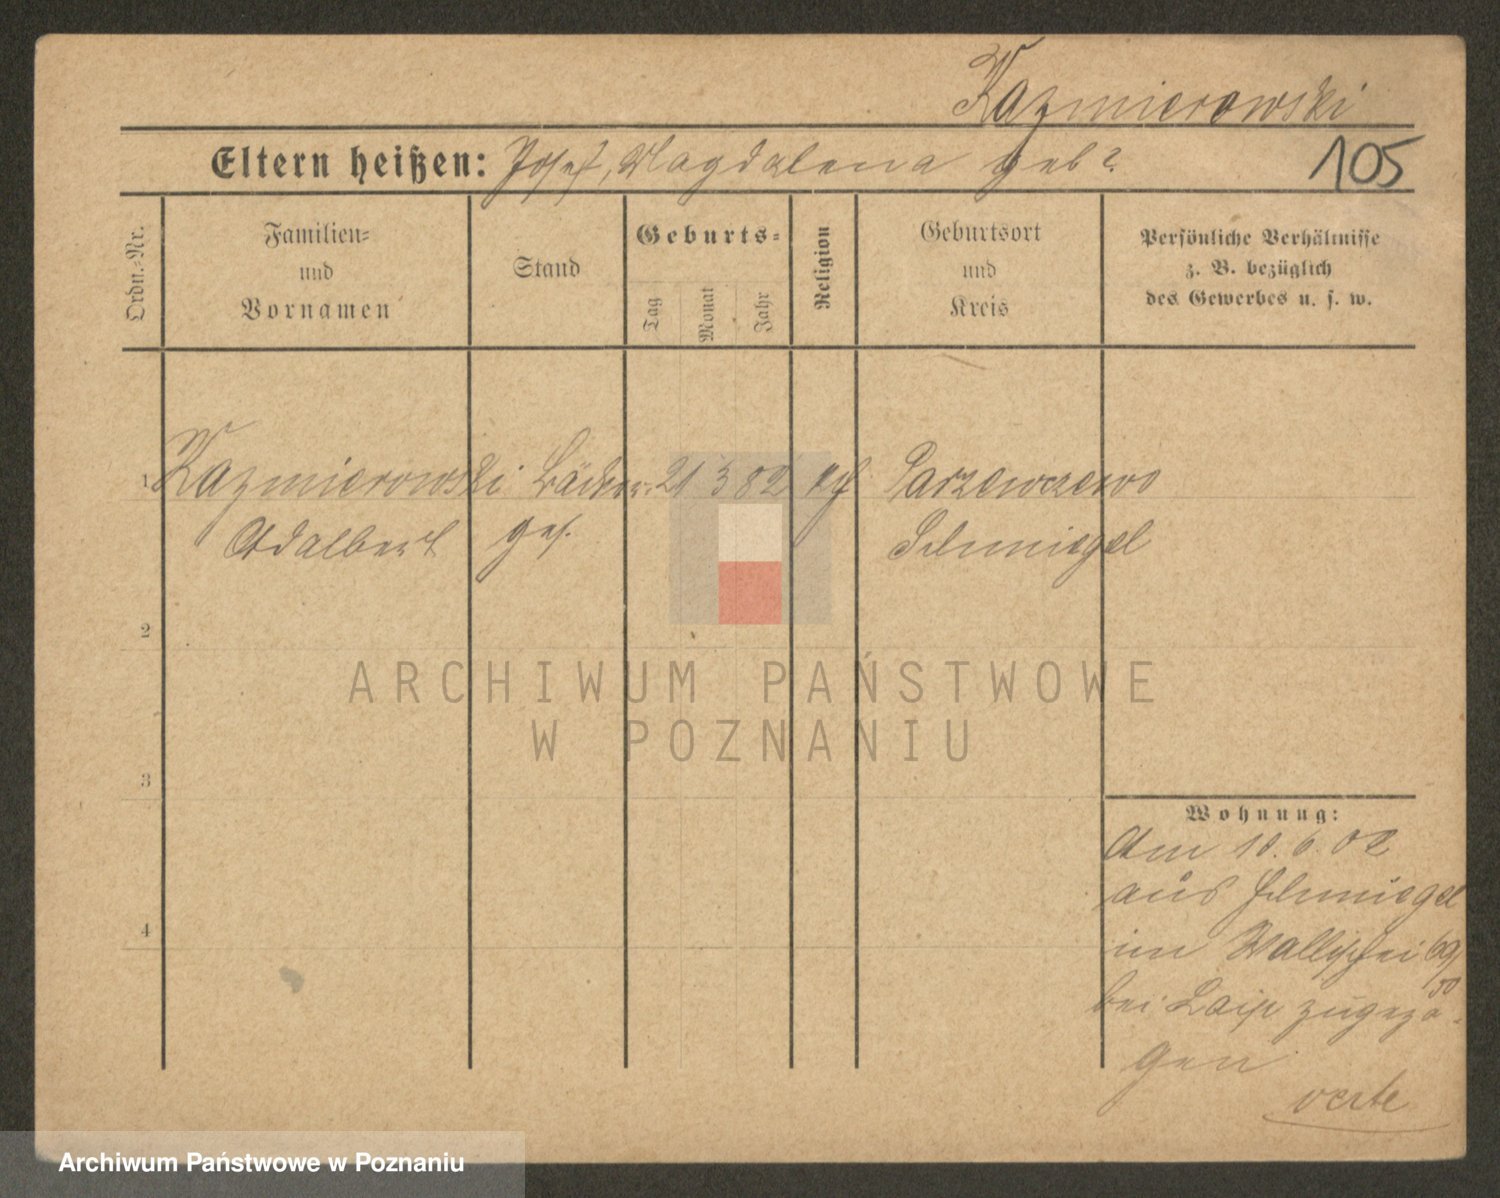 Kazmierowski
Eltern heißen: Josef, Magdalena geb?
105
Ordn.-Nr.
Familien-
und
Vornamen
Stand
Geburts-
Tag
Monat
Jahr
Religion
Geburtsort
und
Kreis
Persönliche Verhältnisse
z. B. bezüglich
des Gewerbes u. s. w.
1 Kazmierowski Bäcker- 21 3 82 kth Parzewczewo
Adalbert ges. Schmiegel
2
3
4
Wohnung:
Am 10. 6. 02
aus Schmiegel
im Wallischei 69/
50
bei zugezo-
gen
verte
ARCHIWUM PAŃSTWOWE
W POZNANIU
Archiwum Państwowe w Poznaniu